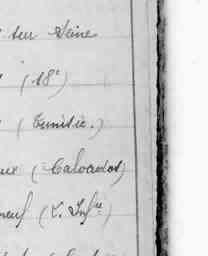 sur Seine
(18e)
(Tunisie.)
(Calvados)
neuf (S. Infre)